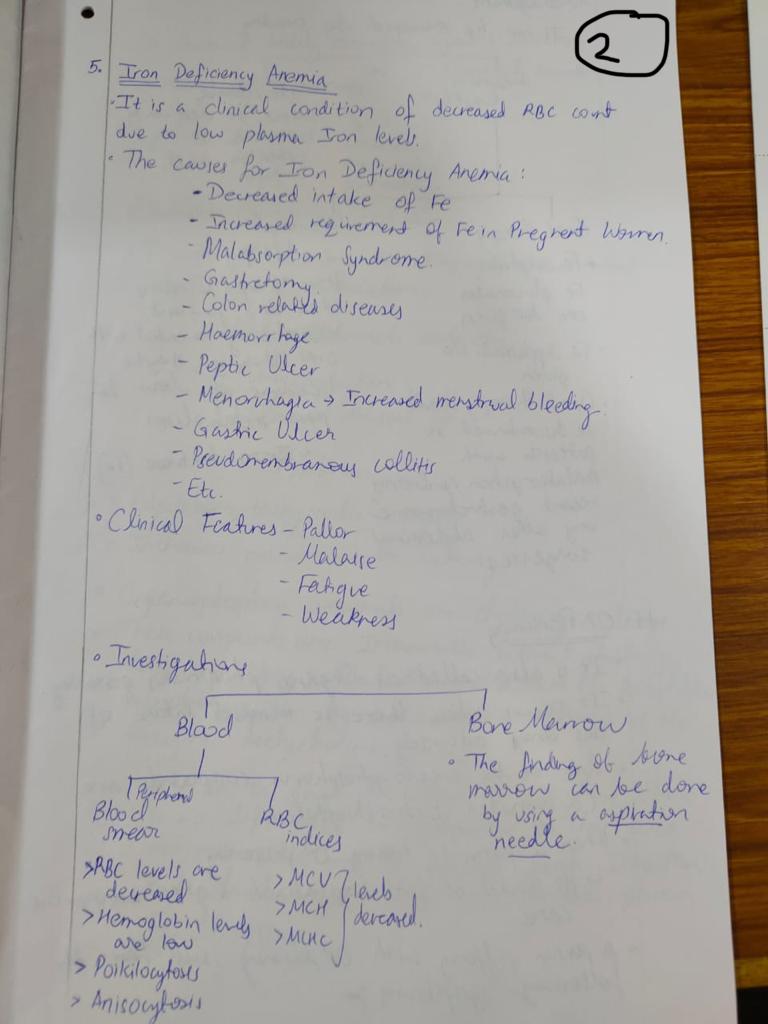 2
5. Iron Deficiency Anemia
• It is a clinical condition of decreased RBC count
due to low plasma Iron levels.
• The causes for Iron Deficiency Anemia :
- Decreased intake of Fe
- Increased requirement of Fe in Pregnent Women.
- Malabsorption Syndrome.
- Gastretomy
- Colon related diseases
- Haemorrhage
- Peptic Ulcer
- Menorrhagia → Increased menstrual bleeding.
- Gastric Ulcer
- Pseudomembranous collitis
- Etc.
• Clinical Features - Pallor
- Malaise
- Fatigue
- Weakness
• Investigations
Blood
Peripheral
Blood
smear
> RBC levels are
decreased
> Hemoglobin levels
are low
> Poikilocytosis
> Anisocytosis
RBC
indices
> MCV
> MCH
> MCHC
levels
decreased.
Bone Marrow
• The finding of bone
marrow can be done
by using a aspiration
needle.